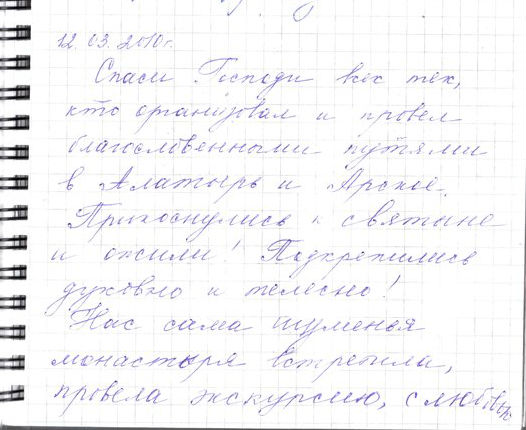 12.03.2010г.
Спаси Господи всех тех,
кто организовал и провел
благословенными путями
в Алатырь и Арское.
Прикоснулись к святыне
и ожили! Подкрепились
духовно и телесно!
Нас сама игуменья
монастыря встретила,
провела экскурсию, с любовью